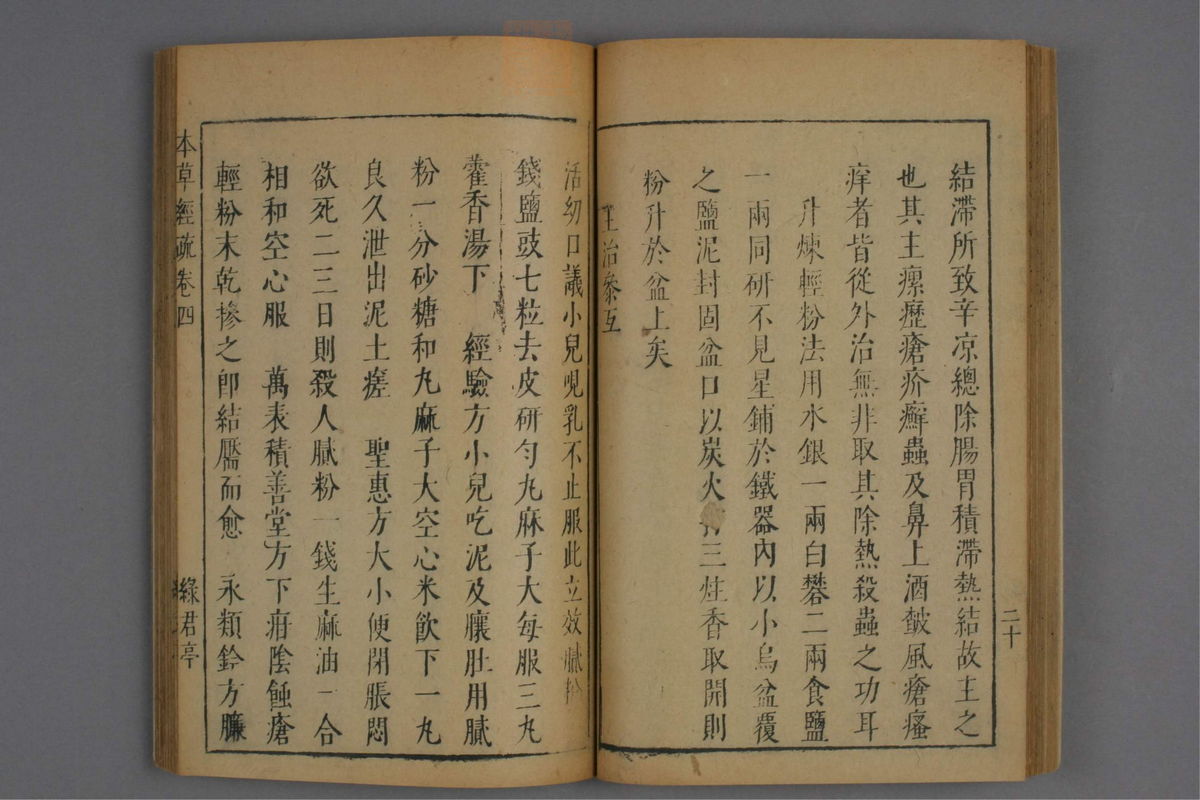 結滯所致辛凉總除腸胃積滯熱結故主之
也其主瘰癧瘡疥癬蟲及鼻上酒皶風瘡瘙
痒者皆從外治無非取其除熱殺蟲之功耳
升煉輕粉法用水銀一兩白礬二兩食鹽
一兩同研不見星鋪於鐵器內以小烏盆覆
之鹽泥封固盆口以炭火三炷香取開則
粉升於盆上矣
主治參互
二十
活幼口議小兒哯乳不止服此立效膩粉
錢鹽豉七粒去皮研勻丸麻子大每服三丸
藿香湯下　經驗方小兒吃泥及臕肚用膩
粉一分砂糖和丸麻子大空心米飲下一丸
良久泄出泥土瘥　聖惠方大小便閉脹悶
欲死二三日則殺人膩粉一錢生麻油一合
相和空心服　萬表積善堂方下疳陰蝕瘡
輕粉末乾摻之卽結靨而愈　永類鈐方臁
本草經疏卷四
綠君亭